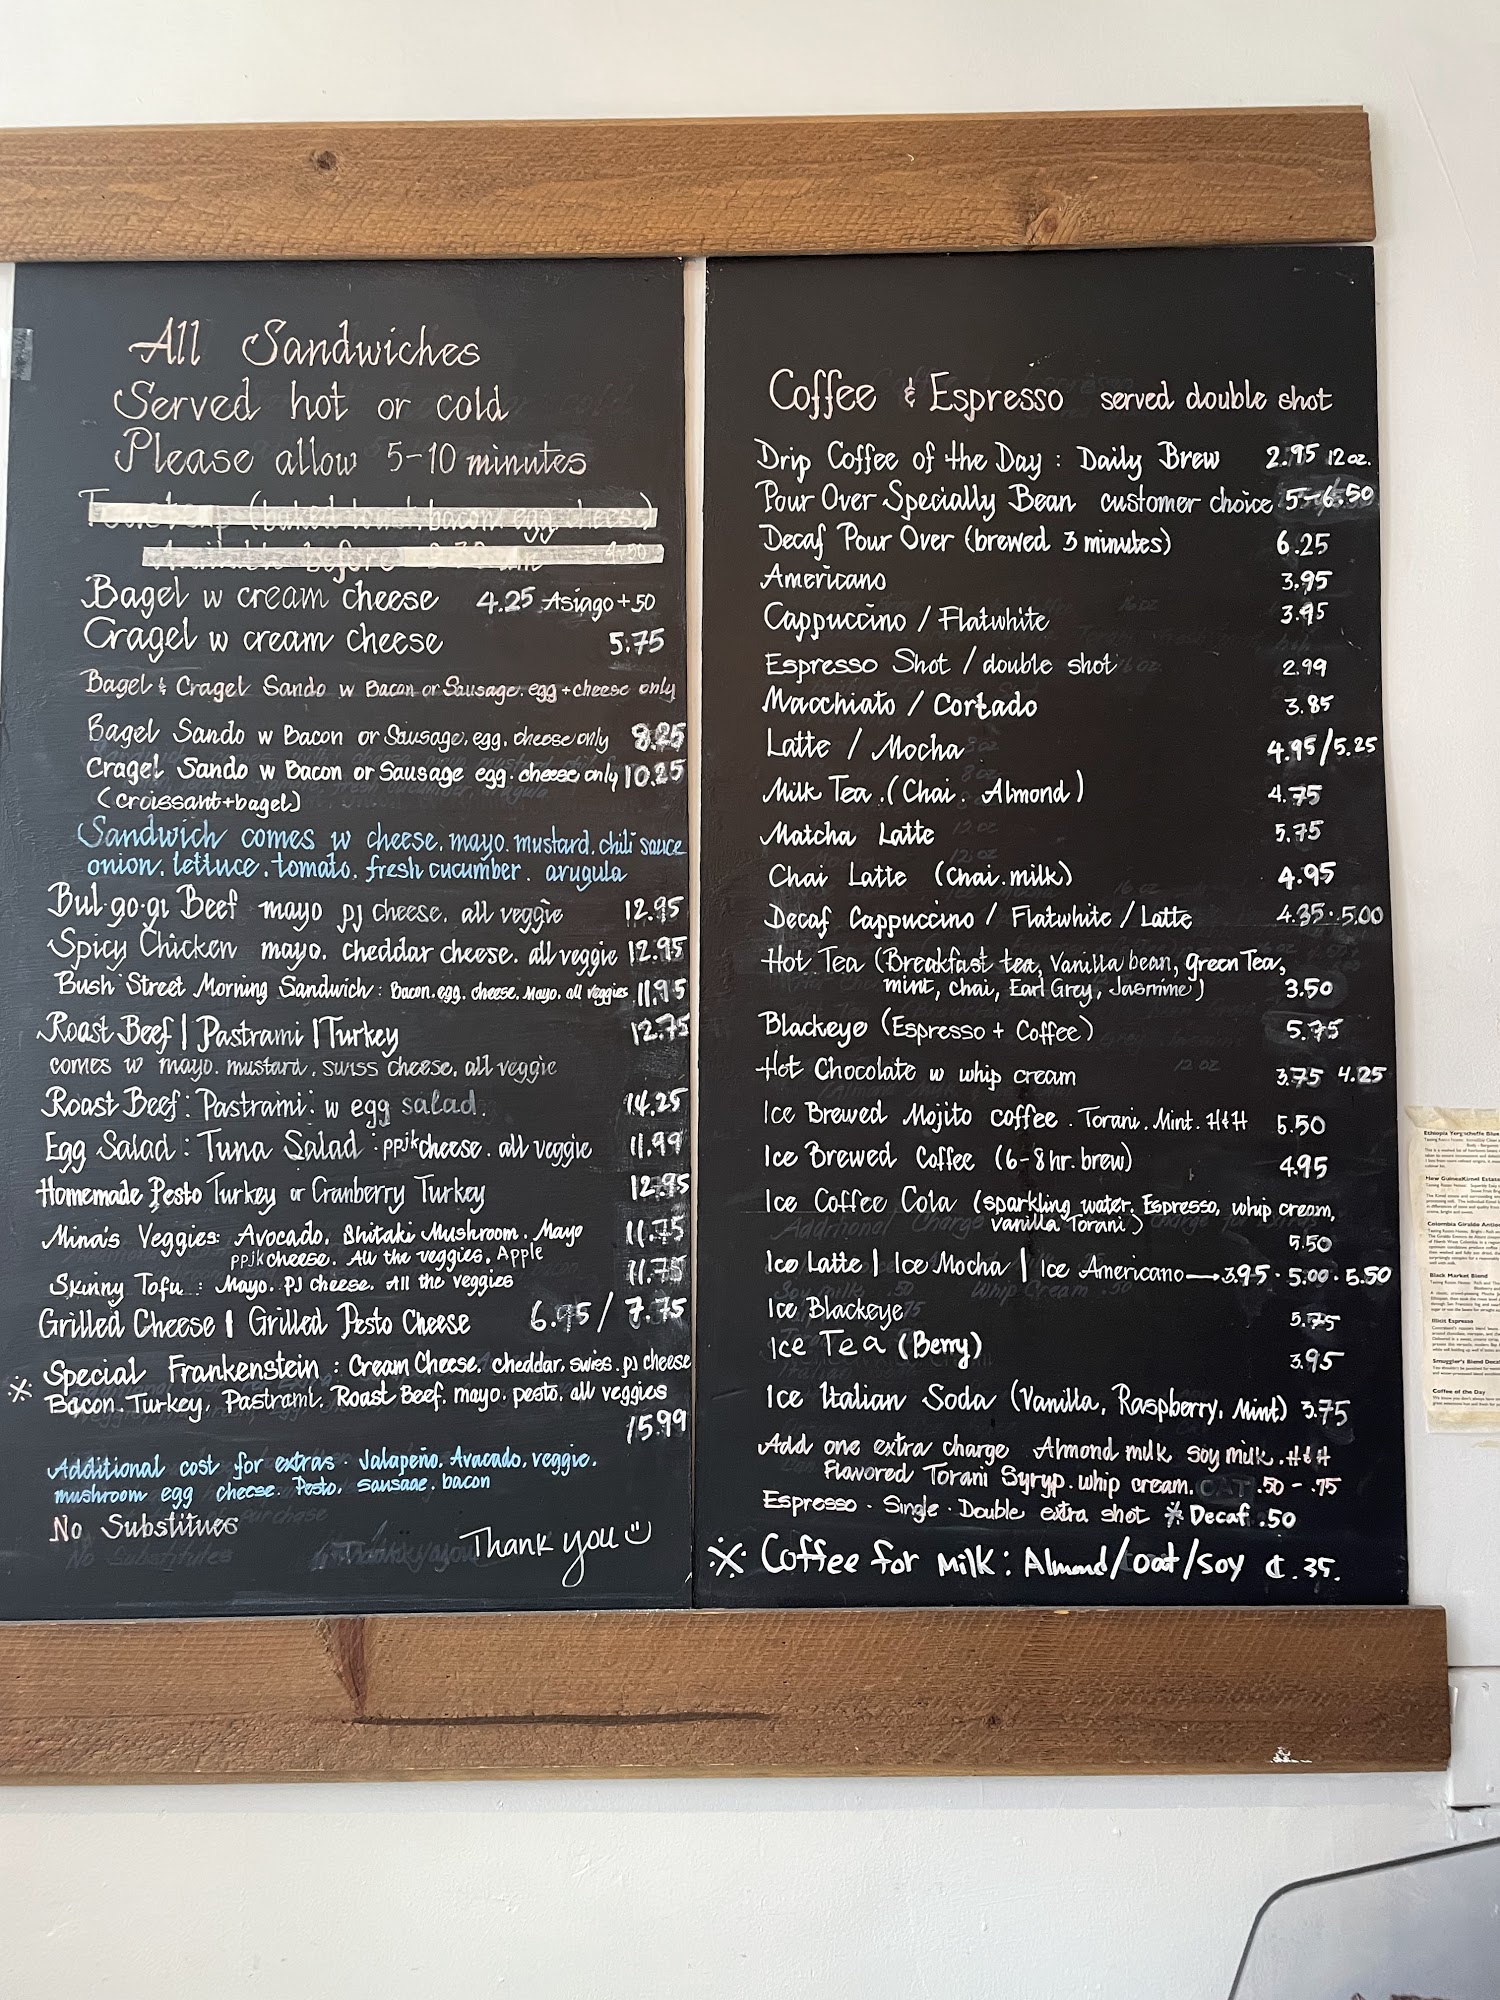 All Sandwiches
Served hot or cold
Please allow 5-10 minutes
(baked toast, bacon, egg, cheese)
before
4.50
Bagel w cream cheese 4.25 Asiago +50
Cragel w cream cheese 5.75
Bagel & Cragel Sando w Bacon or Sausage. egg + cheese only
Bagel Sando w Bacon or Sausage, egg, cheese only 8.25
Cragel Sando w Bacon or Sausage egg. cheese only 10.25
(croissant+bagel)
Sandwich comes w cheese, mayo. mustard. chili sauce
onion. lettuce. tomato. fresh cucumber. arugula
Bul·go·gi Beef mayo pj cheese. all veggie 12.95
Spicy Chicken mayo. cheddar cheese. all veggie 12.95
Bush Street Morning Sandwich: Bacon. egg. cheese. Mayo. all veggies 11.95
Roast Beef | Pastrami | Turkey 12.75
comes w mayo. mustard, swiss cheese, all veggie
Roast Beef: Pastrami: w egg salad. 14.25
Egg Salad: Tuna Salad: ppjk cheese. all veggie 11.99
Homemade Pesto Turkey or Cranberry Turkey 12.95
Mina's Veggies: Avocado. Shitaki Mushroom. Mayo 11.75
ppjk cheese. All the veggies. Apple
Skinny Tofu: Mayo. PJ cheese. All the veggies 11.75
Grilled Cheese | Grilled Pesto Cheese 6.95 / 7.75
※ Special Frankenstein: Cream Cheese, cheddar. swiss. pj cheese
Bacon. Turkey. Pastrami. Roast Beef. mayo. pesto. all veggies
15.99
Additional cost for extras. Jalapeño. Avacado, veggie.
mushroom egg cheese. Pesto. sausage. bacon
No Substitues
Thank you
Coffee & Espresso served double shot
Drip Coffee of the Day: Daily Brew 2.95 12oz.
Pour Over Specially Bean customer choice 5-6.50
Decaf Pour Over (brewed 3 minutes) 6.25
Americano 3.95
Cappuccino / Flatwhite 3.95
Espresso Shot / double shot 2.99
Macchiato / Cortado 3.85
Latte / Mocha 4.95/5.25
Milk Tea.(Chai. Almond) 4.75
Matcha Latte 5.75
Chai Latte (Chai.milk) 4.95
Decaf Cappuccino / Flatwhite / Latte 4.35·5.00
Hot Tea (Breakfast tea, Vanilla bean, green Tea,
mint, chai, Earl Grey, Jasmine) 3.50
Blackeye (Espresso + Coffee) 5.75
Hot Chocolate w whip cream 3.75 4.25
Ice Brewed Mojito coffee. Torani. Mint. H&H 5.50
Ice Brewed Coffee (6-8hr. brew) 4.95
Ice Coffee Cola (sparkling water. Espresso, whip cream,
vanilla Torani) 5.50
Ice Latte | Ice Mocha | Ice Americano→3.95·5.00·5.50
Ice Blackeye 5.75
Ice Tea (Berry) 3.95
Ice Italian Soda (Vanilla, Raspberry, Mint) 3.75
Add one extra charge Almond milk soy milk. H&H
Flavored Torani Syryp. whip cream. OAT .50 - .75
Espresso. Single. Double extra shot * Decaf .50
※ Coffee for milk: Almond/oat/soy ¢.35.
Ethiopia Yergacheffe Blue
New Guinea Kimel Estate
Black Market Blend
Illicit Espresso
Smuggler's Blend Decaf
Coffee of the Day